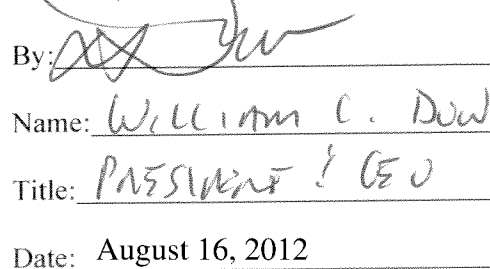 By:
Name: William C. Dow
Title: President & CEO
Date: August 16, 2012